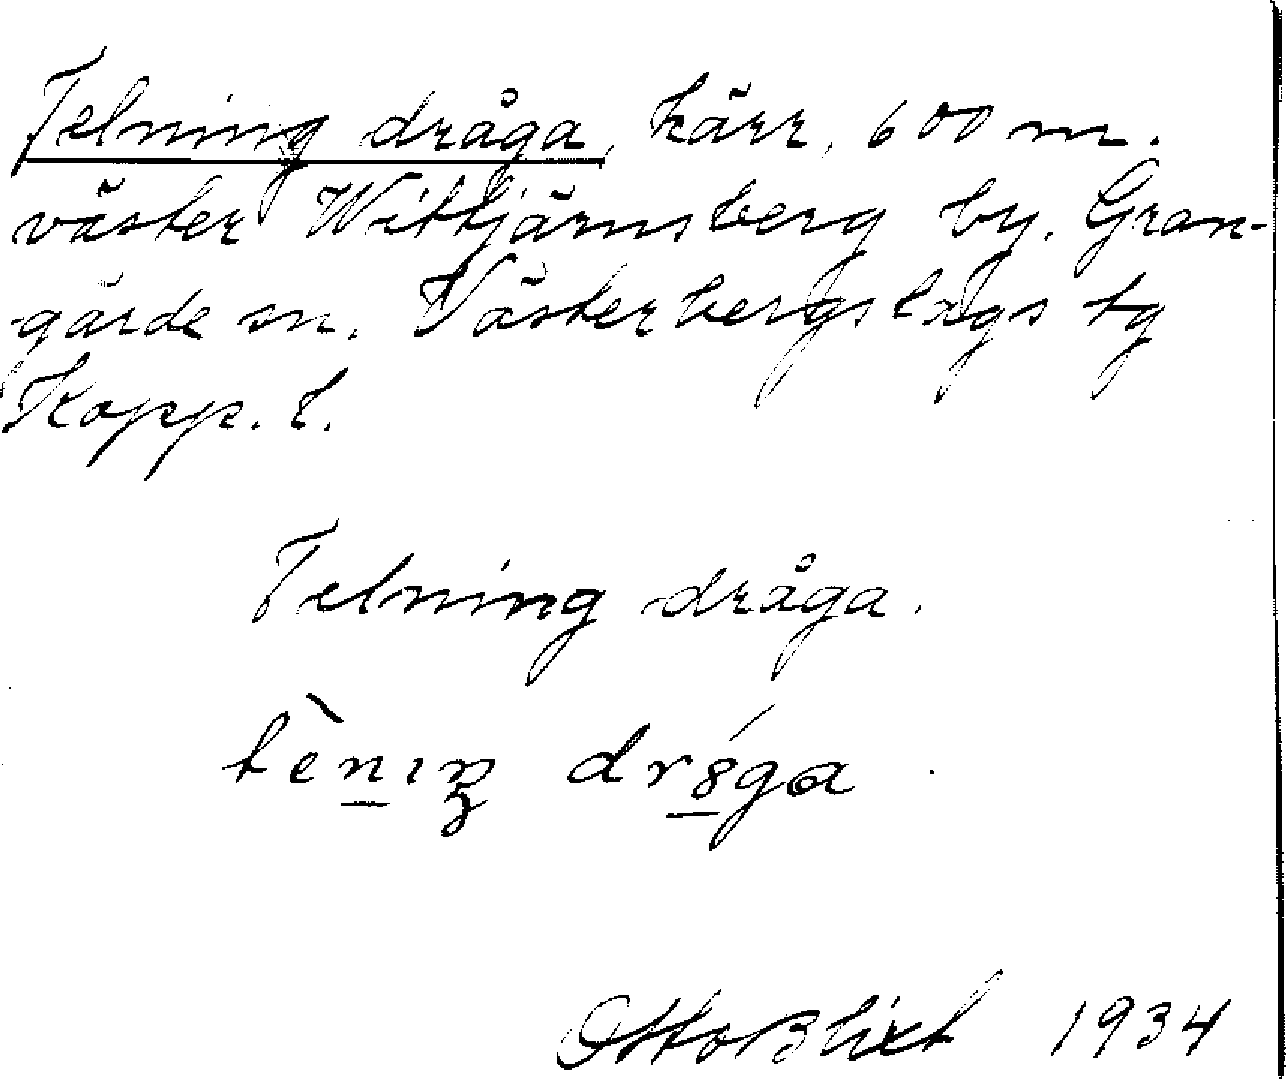 Telning dråga, kärr, 600 m.
väster Wittjärnsberg by. Gran-
gärde sn. Västerbergslags tg
Kopp. l.
Telning dråga.
dråga.
Otto Blixt 1934